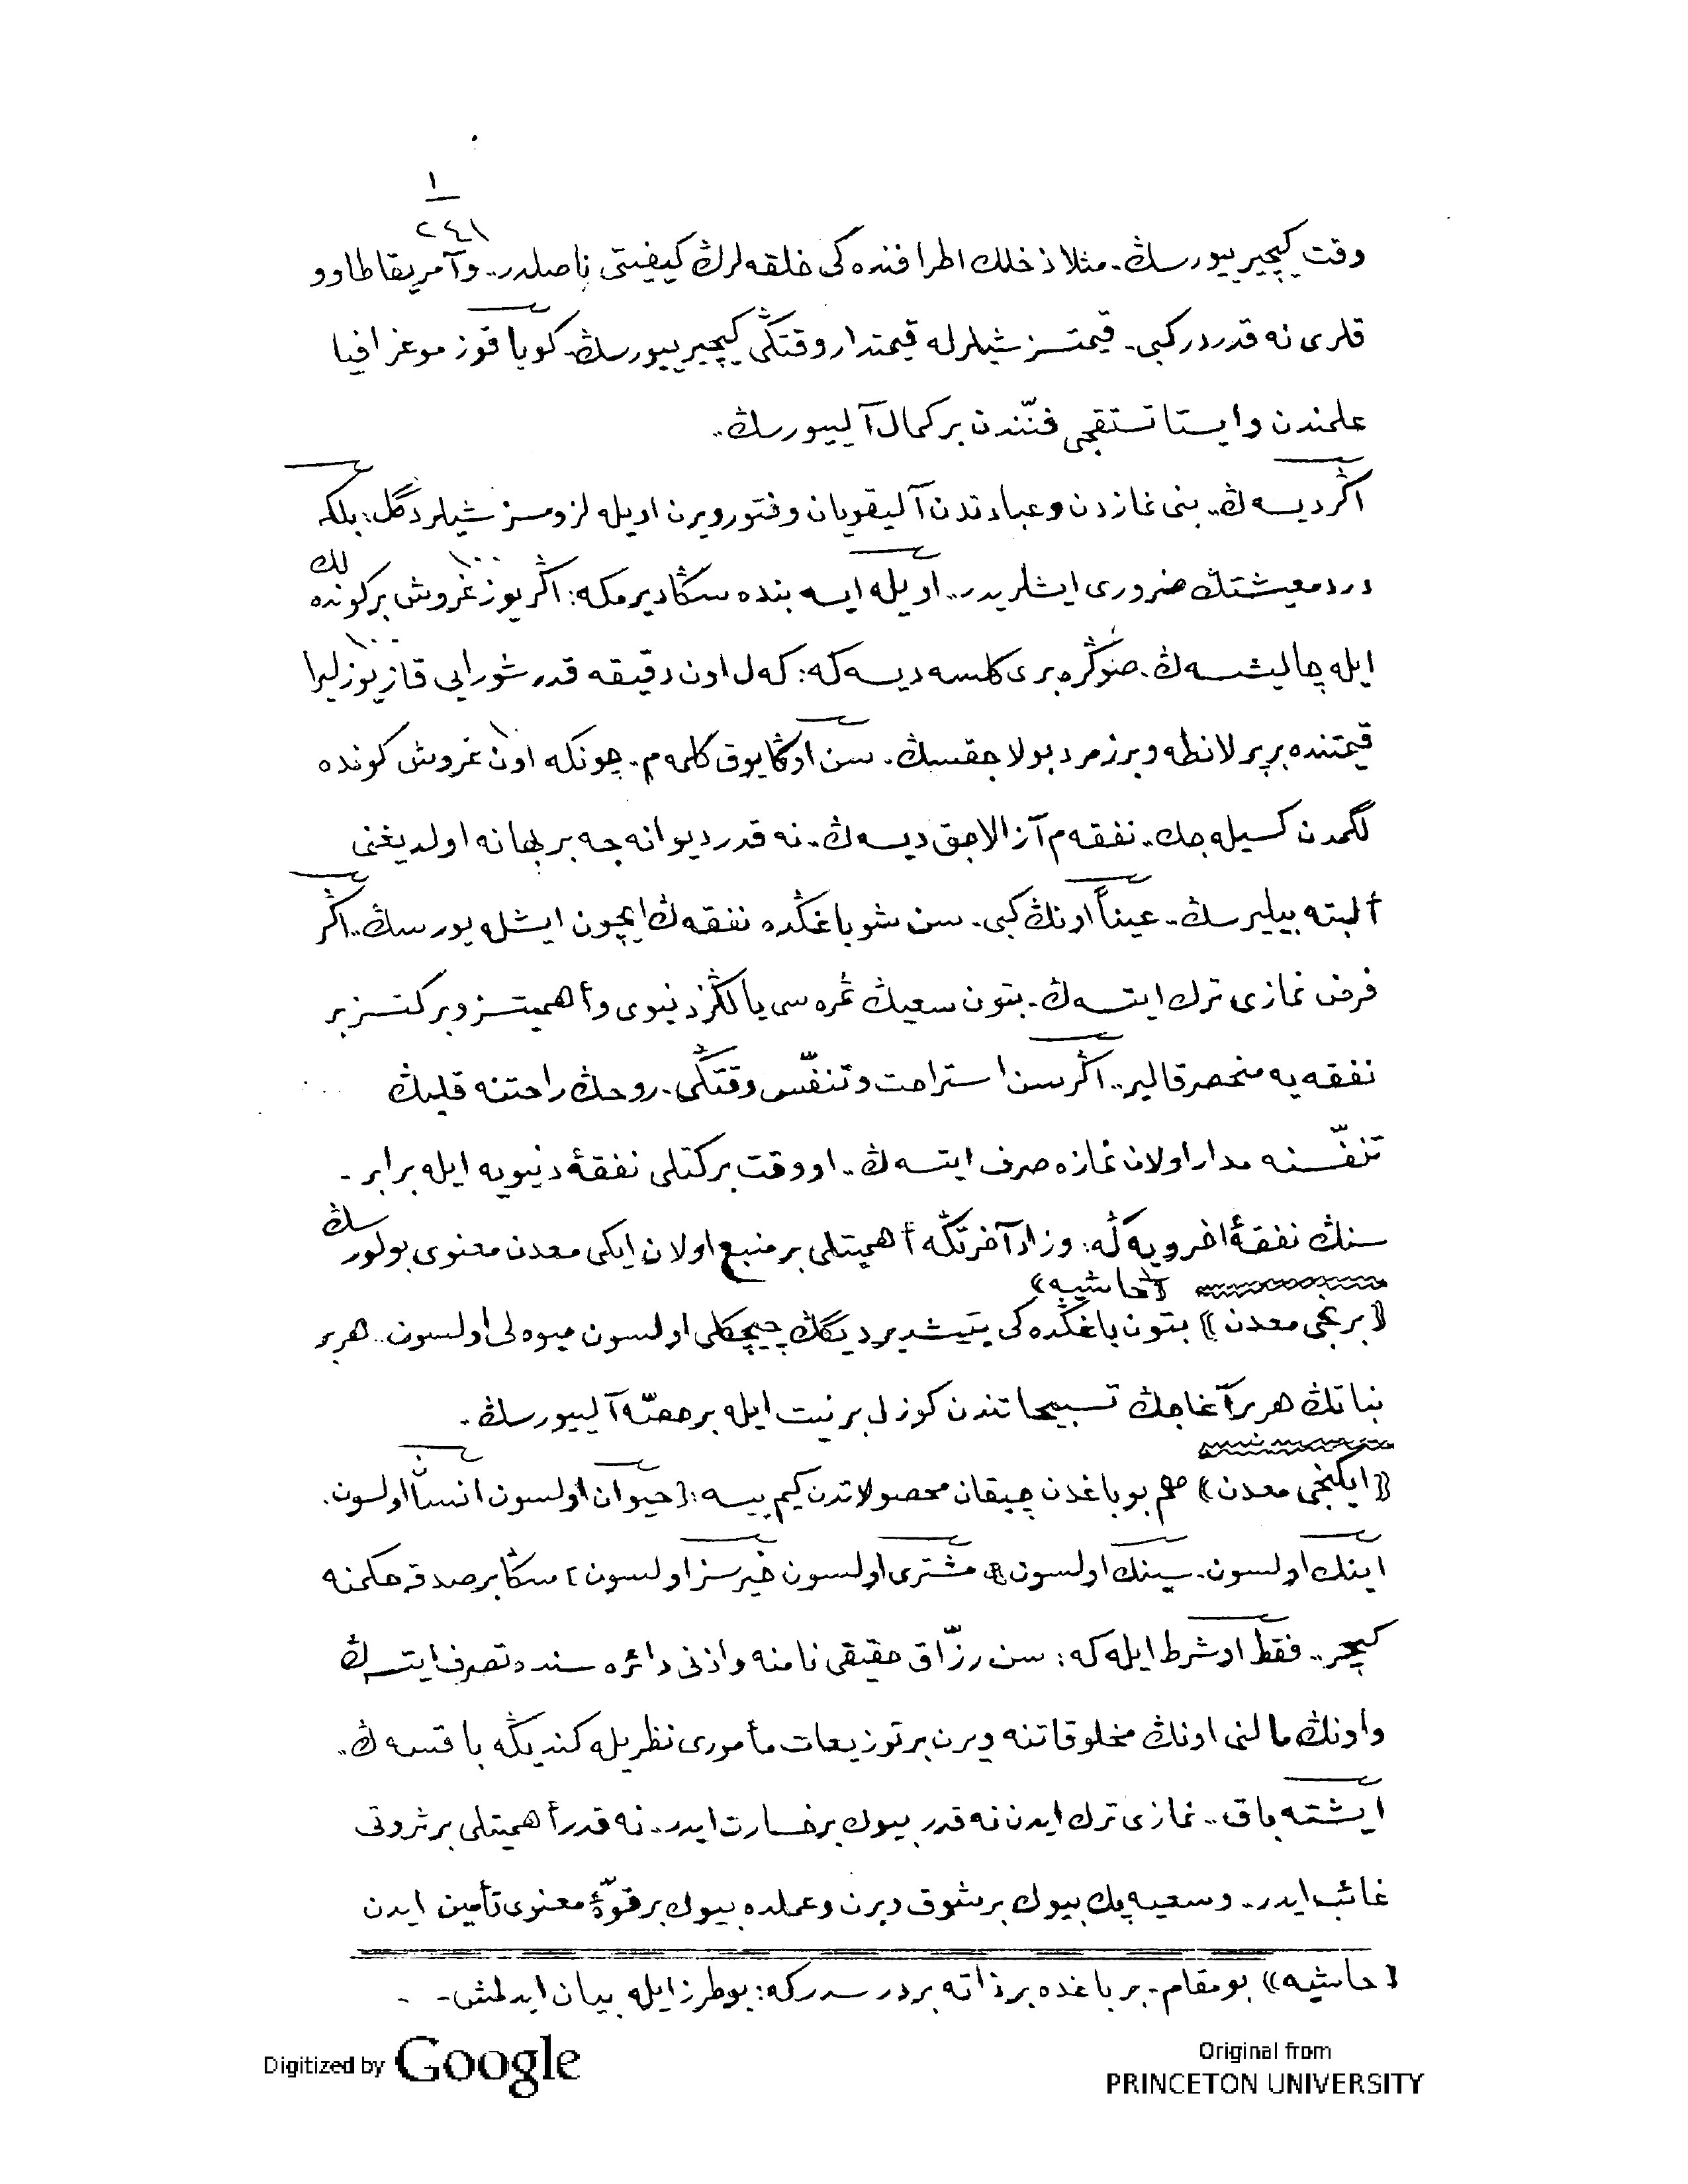 ١
٢٤١
وقت كيچيرييورسڭ. مثلا ذحلك اطرافنده كى خلقه لرڭ كيفيتى ناصلدر.. وآمريقا طاوو
قلرى نه قدردر كبى.. قيمتسز شيلرله قيمتدار وقتڭى كيچيرييورسڭ. كويا قوزموغرافيا
علمندن وايستاتستقجى فنّندن بر كمال آلييورسڭ..
اڭر ديسه ڭ.. بنى نمازدن وعبادتدن آليقويان وفتور ويرن اويله لزومسز شيلر دگل؛ بلكه
درد معيشتڭ ضرورى ايشلريدر.. اويله ايسه بنده سڭا ديرمكه: اڭر يوز ١٠٠ غروش بر كونده لك
ايله چاليشسه ڭ. صوڭره برى كلسه ديسه كه: كه ل اون دقيقه قدر شورايى قاز يوز ١٠٠ ليرا
قيمتنده بر پرلانطه وبر زمرد بولاجقسڭ. سن اوڭا يوق كلمه م. چونكه اون ١٠ غروش كونده
لگمدن كسيله جك.. نفقه م آزالاجق ديسه ڭ.. نه قدر ديوانه جه بر بهانه اولديغنى
ألبته بيليرسڭ.. عيناً اونڭ كبى. سن شو باغڭده نفقه ڭ ايچون ايشله يورسڭ.. اڭر
فرض نمازى ترك ايتسه ڭ. بتون سعيڭ ثمره سى يالڭز دنيوى وأهميتسز وبركتسز بر
نفقه يه منحصر قالير.. اڭر سن استراحت وتنفّس وقتڭى. روحڭ راحتنه قلبڭ
تنفّسنه مدار اولان نمازه صرف ايتسه ڭ.. او وقت بركتلى نفقۀ دنيويه ايله برابر-
سنڭ نفقۀ اخرويه ڭه: وزاد آخرتڭه أهميتلى بر منبع اولان ايكى معدن معنوى بولورسڭ
﴿حاشيه﴾
﴿برنجى معدن﴾ بتون باغڭده كى يتيشديرديگڭ چيچكلى اولسون ميوه لى اولسون.. هر بر
نباتڭ هر بر آغاجڭ تسبيحاتندن كوزل بر نيت ايله بر حصّه آلييورسڭ.
﴿ايكنجى معدن﴾ هم بو باغدن چيقان محصولاتدن كيم ييسه: [حيوان اولسون انسان اولسون.
اينك اولسون. سينك اولسون. مشترى اولسون خيرسز اولسون] سڭا بر صدقه حكمنه
كيچر.. فقط او شرط ايله كه: سن رزّاق حقيقى نامنه واذنى دائره سنده تصرف ايتسه ڭ
واونڭ مالنى اونڭ مخلوقاتنه ويرن بر توزيعات مأمورى نظريله كنديڭه باقسه ڭ..
ايشته باق.. نمازى ترك ايدن نه قدر بيوك بر خسارت ايدر.. نه قدر أهميتلى بر ثروتى
غائب ايدر.. وسعيه پك بيوك بر شوق ويرن وعملده بيوك بر قوّۀ معنوى تأمين ايدن
﴿حاشيه﴾ بو مقام.. بر باغده بر ذاته بر درسدركه: بو طرز ايله بيان ايدلمش..
Digitized by Google
Original from
PRINCETON UNIVERSITY